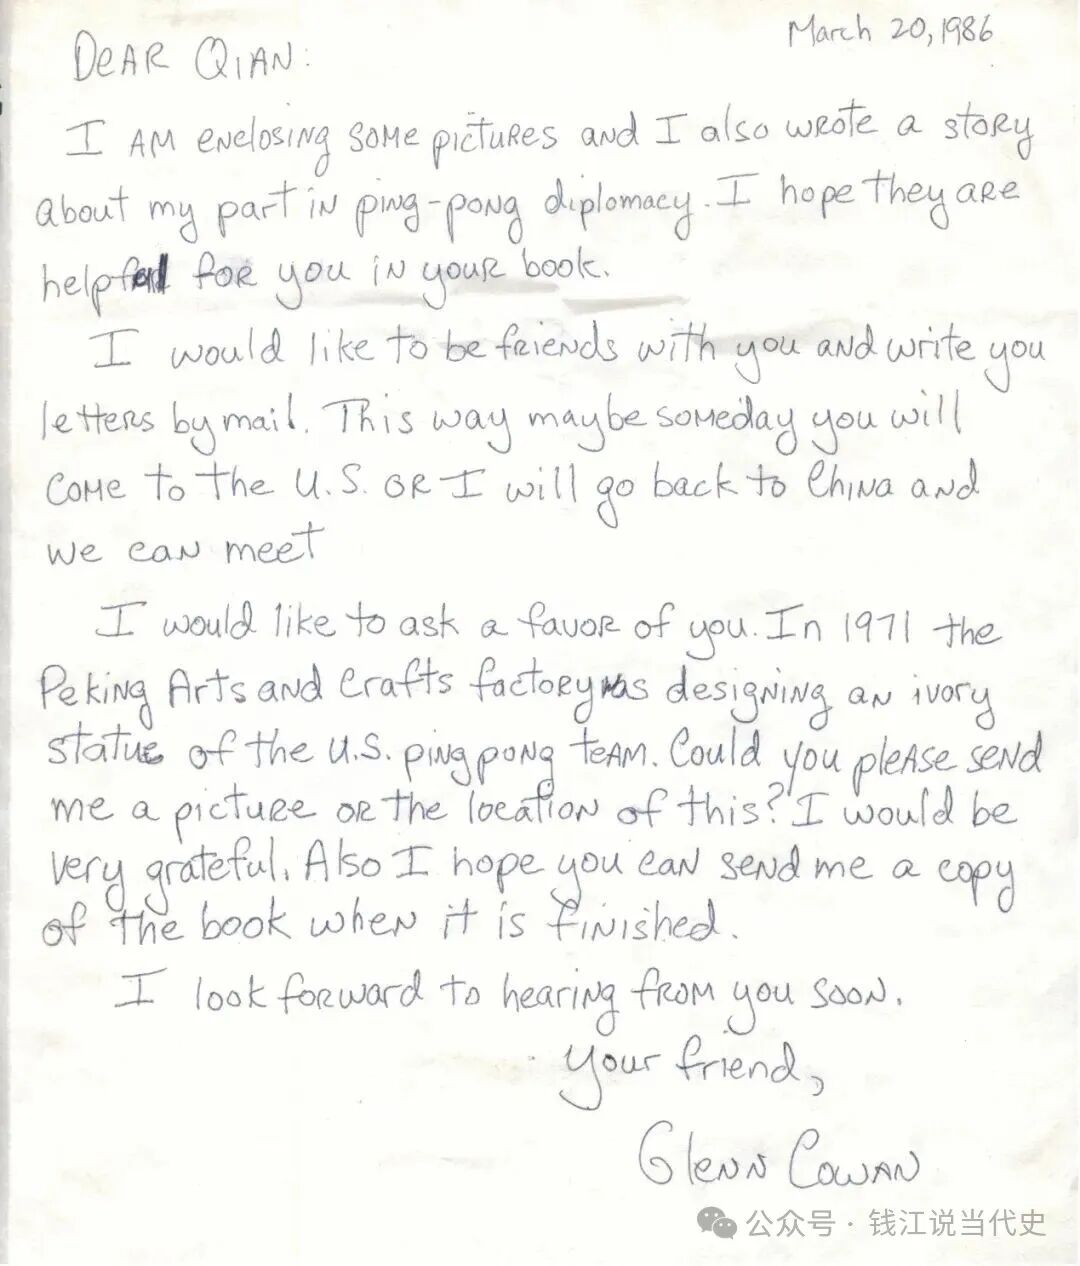 March 20, 1986
DEAR QIAN:
I AM enclosing some pictures and I also wrote a story
about my part in ping-pong diplomacy. I hope they are
helpful for you in your book.
I would like to be friends with you and write you
letters by mail. This way maybe someday you will
come to the U.S. OR I will go back to China and
we can meet
I would like to ask a favor of you. In 1971 the
Peking Arts and Crafts factory was designing an ivory
statue of the U.S. ping pong team. Could you please send
me a picture or the location of this? I would be
very grateful. Also I hope you can send me a copy
of the book when it is finished.
I look forward to hearing from you soon.
Your friend,
Glenn Cowan
公众号·钱江说当代史